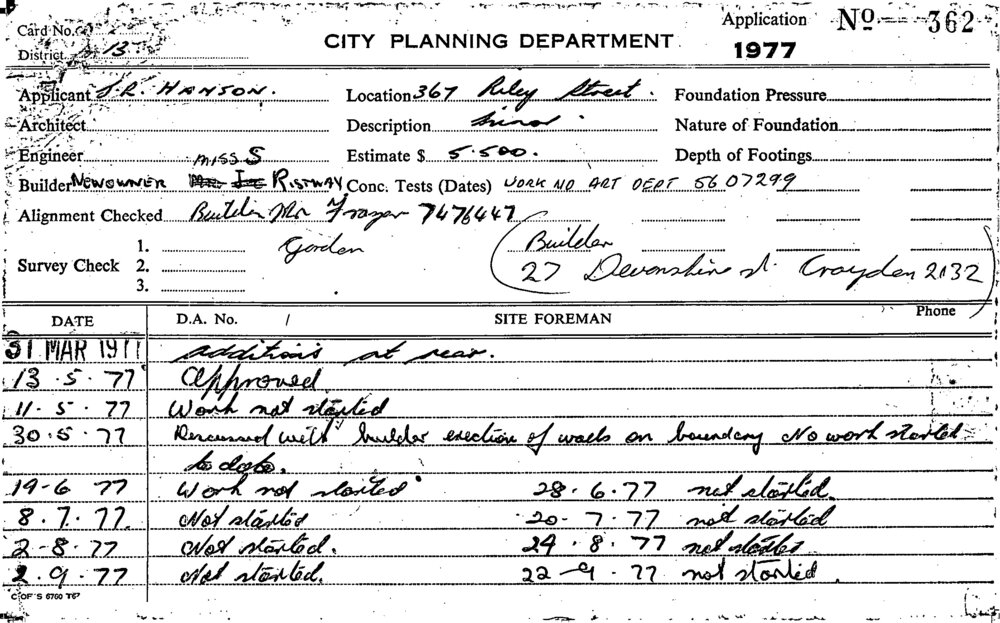 Card No. Application No 362
District 13 CITY PLANNING DEPARTMENT 1977
Applicant J.R. HANSON. Location 367 Riley Street. Foundation Pressure
Architect Description minor. Nature of Foundation
Engineer Estimate $ 5.500. Depth of Footings
MISS S
Builder NEWOWNER RISTWAY Conc. Tests (Dates) WORK NO ART DEPT 5607299
Alignment Checked Builder Mr Frazer 7476447
Gordon
Builder
27 Devonshire St. Croydon 2132
Survey Check 1.
2.
3.
DATE D.A. No. / SITE FOREMAN Phone
31 MAR 1977 additions at rear.
13.5.77 Approved
11.5.77 Work not started
30.5.77 Discussed with builder erection of walls on boundary No work started
to date.
19-6 77 Work not started 28.6.77 not started.
8.7.77. Not started 20-7.77 not started
2-8.77 Not started. 24.8.77 not started
2.9.77 Not started. 22-9.77 not started.
C OF S 6760 T67